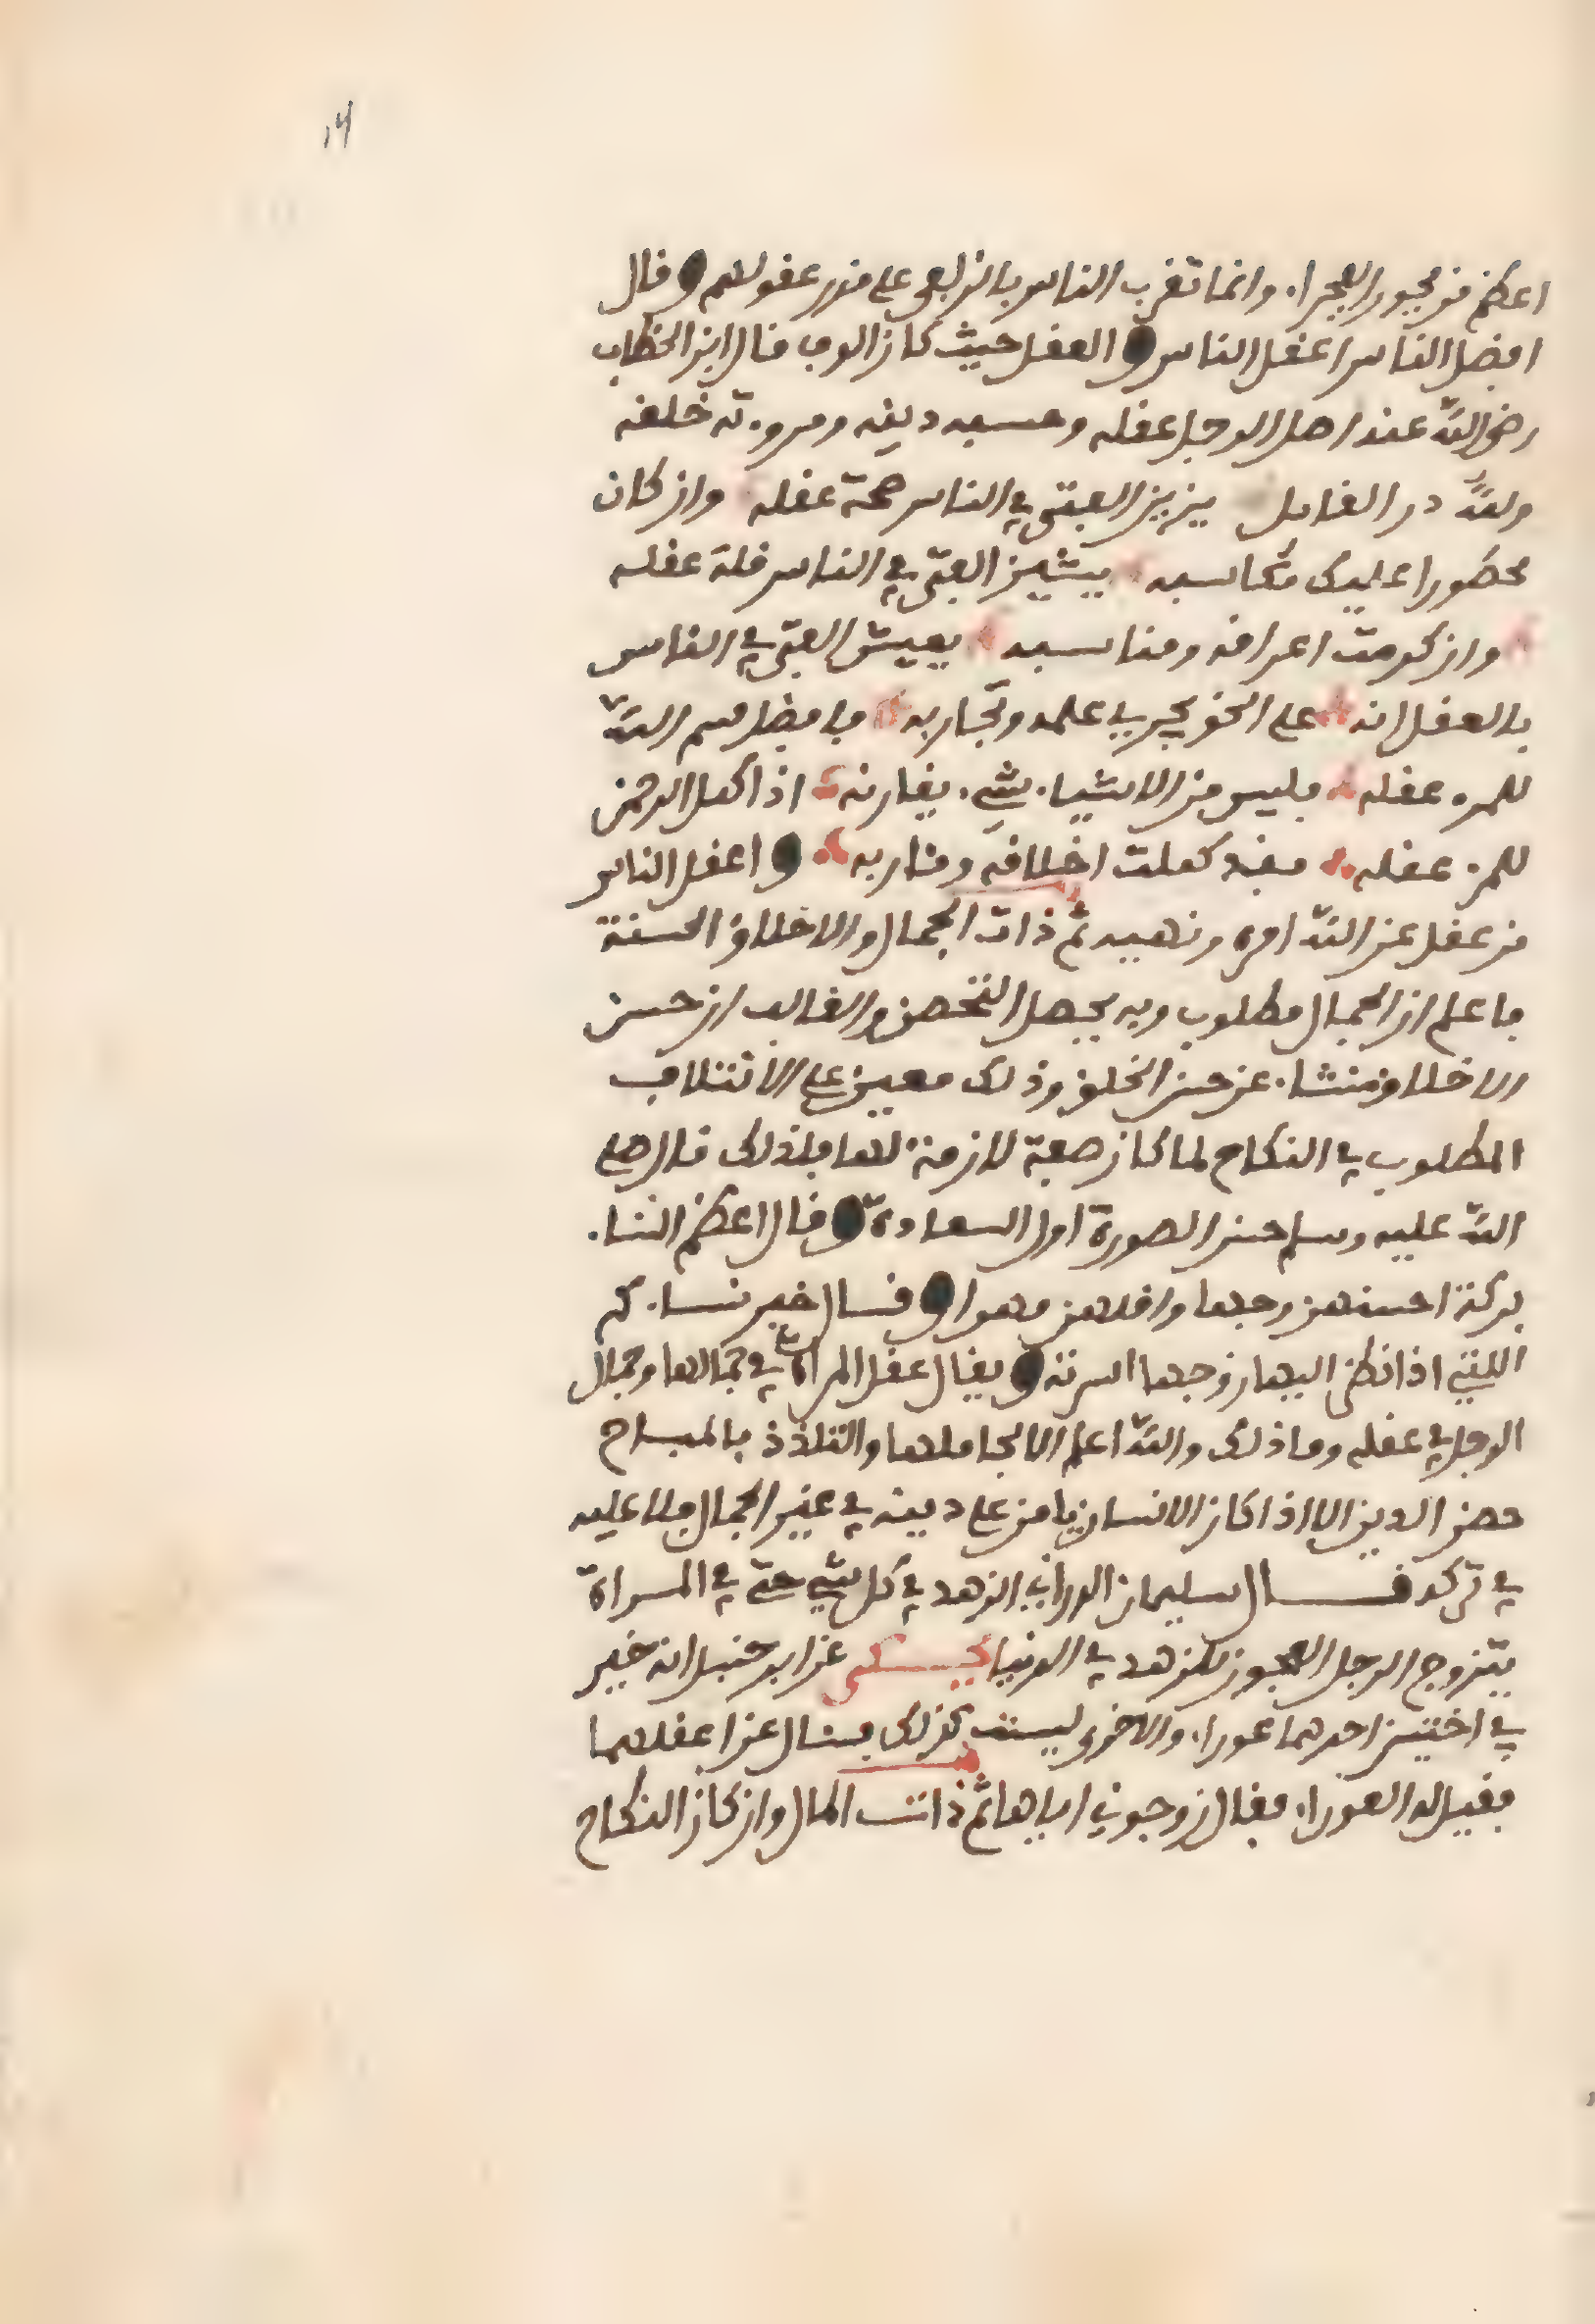 14
اعظم من فجور الفجراء وانما تقرب الناس بالزلفى على قدر عقولهم وقال
افضل الناس اعقل الناس والعقل حيث كان الوب قال ابن الخطاب
رضي الله عنه اصل الرجل عقله وحسبه دينه ومروءته خلقه
ولله در القايل يزين الفتى في الناس صحة عقله وان كان
محضورا عليك مكاسبه يشين الفتى في الناس قلة عقله
وان كرمت اعراقه ومناسبه يعيش الفتى في الناس
بالعقل انه على العقل يجري علمه وتجاربه فافضل قسم الله
للمرء عقله فليس من الاشياء شيء يقاربه اذا اكمل الرحمن
للمرء عقله فقد كملت اخلاقه ومئاربه واعقل الناس
من عقل عن الله امره ونهيه ثم ذات الجمال والاخلاق الحسنة
فاعلم ان الجمال مطلوب وبه يحصل التحصن والغالب ان حسن
الاخلاق منشاء عن حسن الخلق وذلك معين على الائتلاف
المطلوب في النكاح لما كان صفة لازمة لها فلذلك قال صلى
الله عليه وسلم حسن الصورة اول السعادة وقال اعظم النساء
بركة احسنهن وجها واقلهن مهرا وقال خير نساءكم
اللتي اذا نظر اليها زوجها اسرته ويقال عقل المراة في جمالها وجمال
الرجل في عقله وما ذلك والله اعلم الا بجاملها والتلذذ بالمباح
حصن الدين الا اذا كان الانسان يامن على دينه في غير الجمال فلا عليه
في تركه قال سليمان الداراني الزهد في كل شيء حتى في المراة
يتزوج الرجل العجوز للزهد في الدنيا يحكى عن ابن حنبل انه خير
في اختين احدهما عوراء والاخرى ليست كذلك فسال عن اعقلهما
فقيل له العوراء فقال زوجوني اياها ثم ذات المال وان كان النكاح